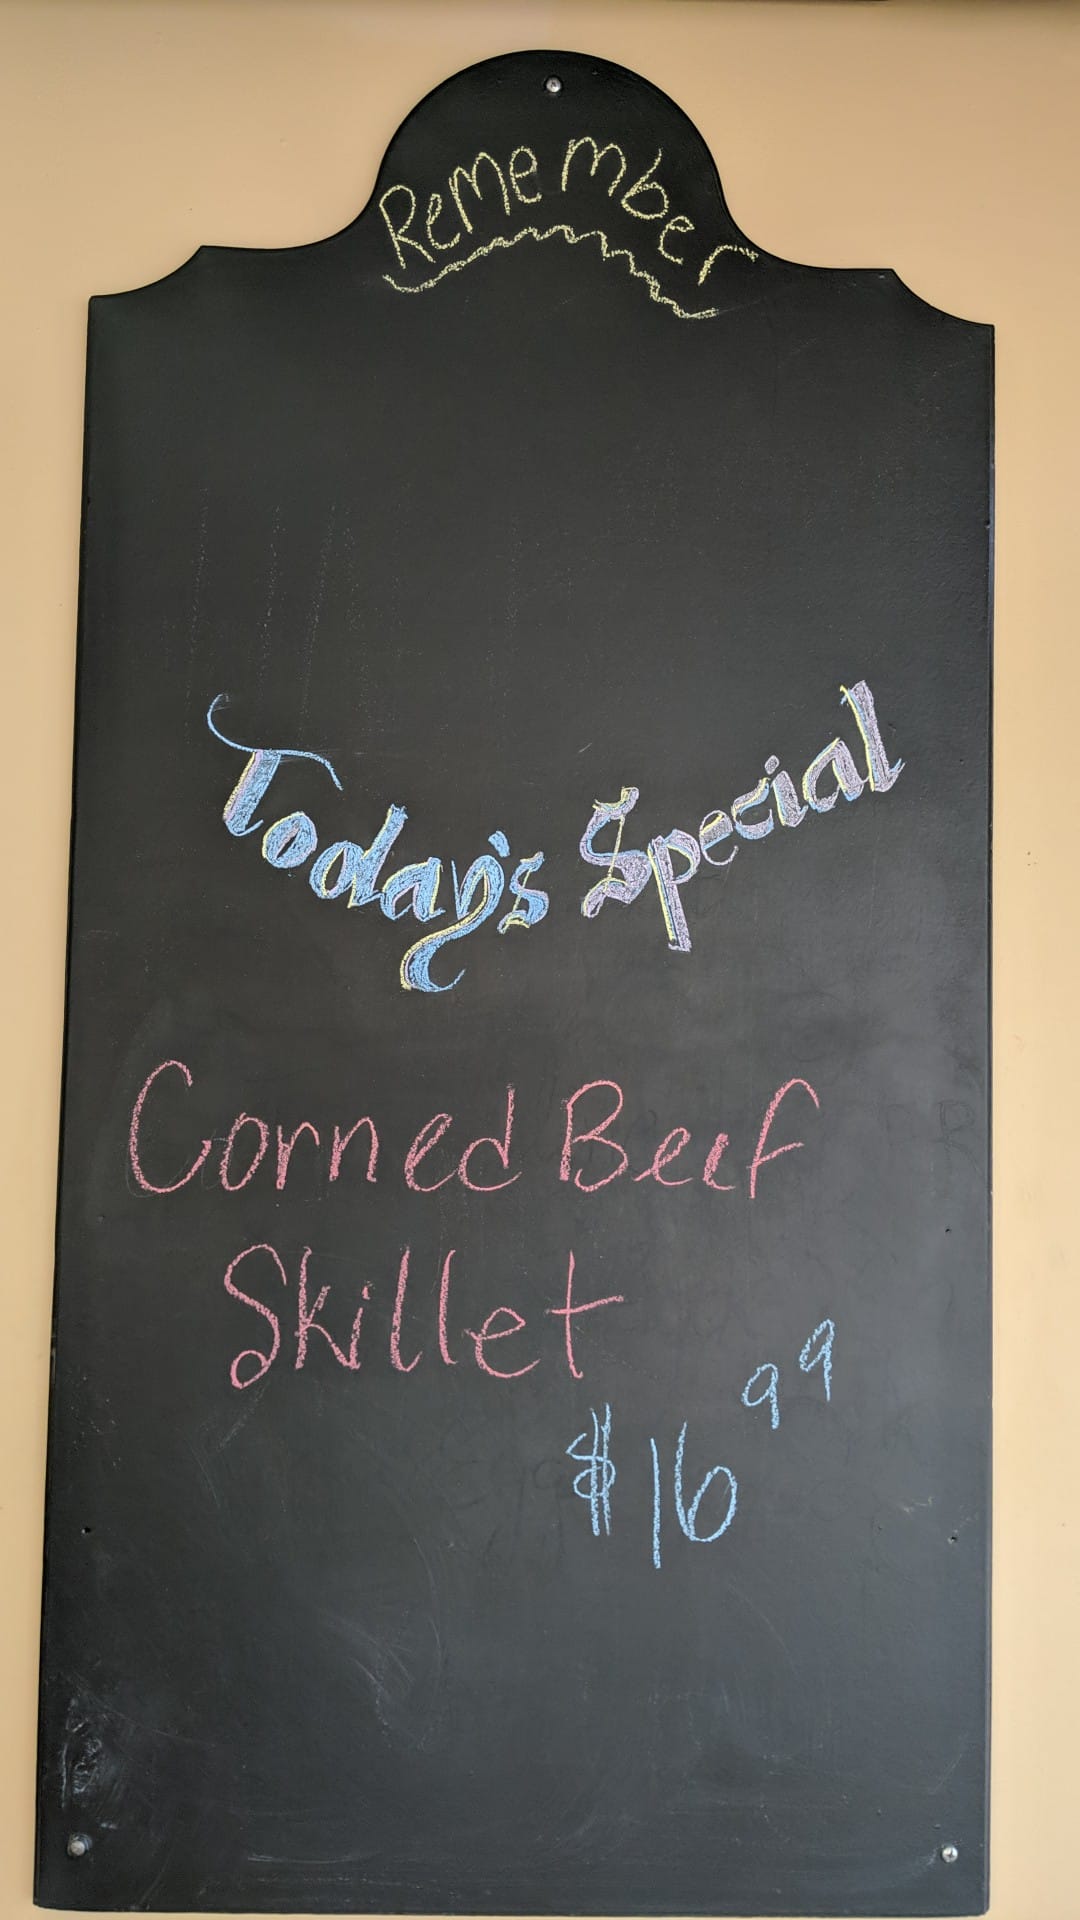 Remember
Today's Special
Corned Beef
Skillet
$16 99